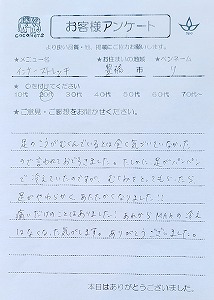 COCONUTS
お客様アンケート
より良い治療・他、指導にご協力お願いします。
★メニュー名 ★お住まいの地域 ★ペンネーム
インナーストレッチ 豊橋 市 リ
★ ○を付けてください
10代 20代 30代 40代 50代 60代 70代~
★ご意見・ご感想をお聞かせください。
足のこうがむくんでいるとは全く気づいていなかった
ので言われておどろきました。たしかに、足がパンパン
で冷えていたのですが、むくみをとってもらったら
足がやわらかく、あたたかくなりました!!
痛いだけのことはありました! あれから の冷え
はなくなった気がします。ありがとうございました。
本日はありがとうございました。